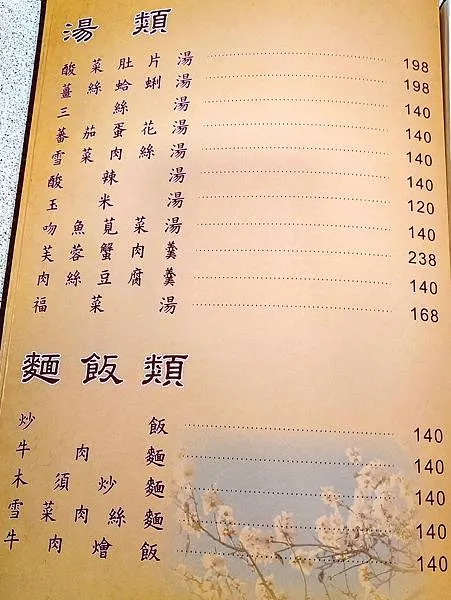 湯類
酸菜肚片湯 198
薑絲蛤蜊湯 198
三絲湯 140
蕃茄蛋花湯 140
雪菜肉絲湯 140
酸辣湯 140
玉米湯 120
吻魚莧菜湯 140
芙蓉蟹肉羹 238
肉絲豆腐羹 140
福菜湯 168
麵飯類
炒飯 140
牛肉麵 140
木須炒麵 140
雪菜肉絲麵 140
牛肉燴飯 140